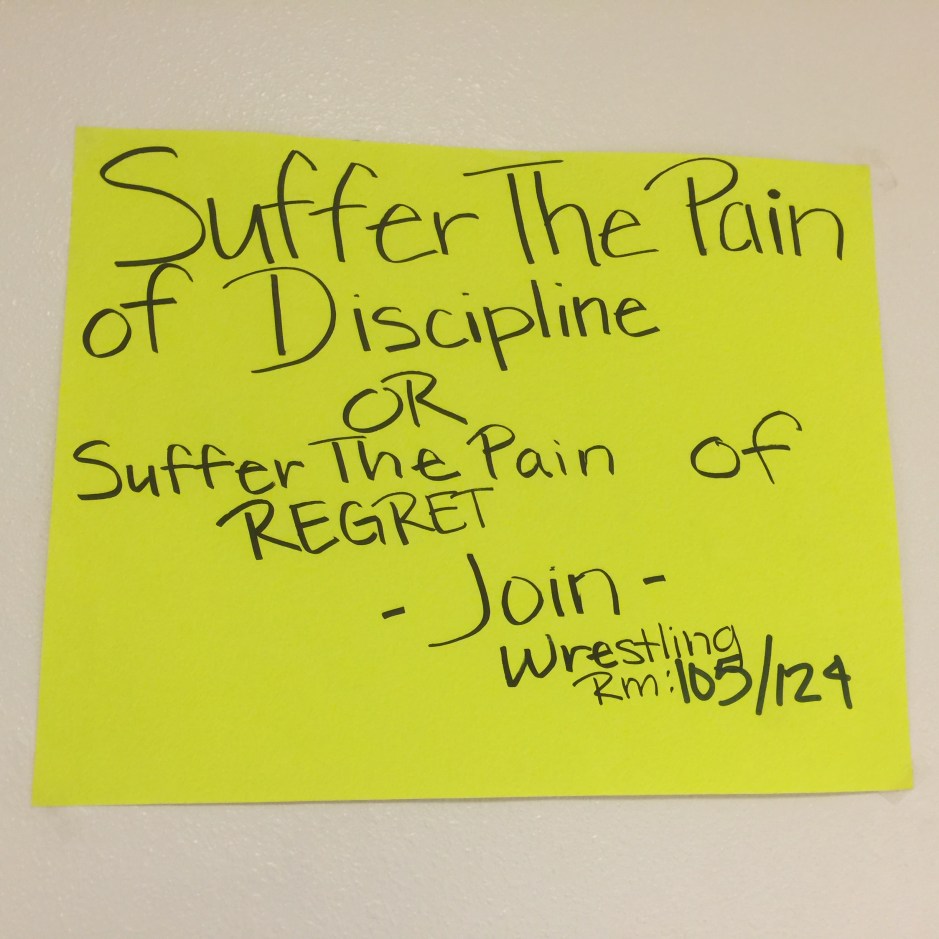 Suffer The Pain
of Discipline
OR
Suffer The Pain of
REGRET
- Join -
Wrestling
Rm: 105/124